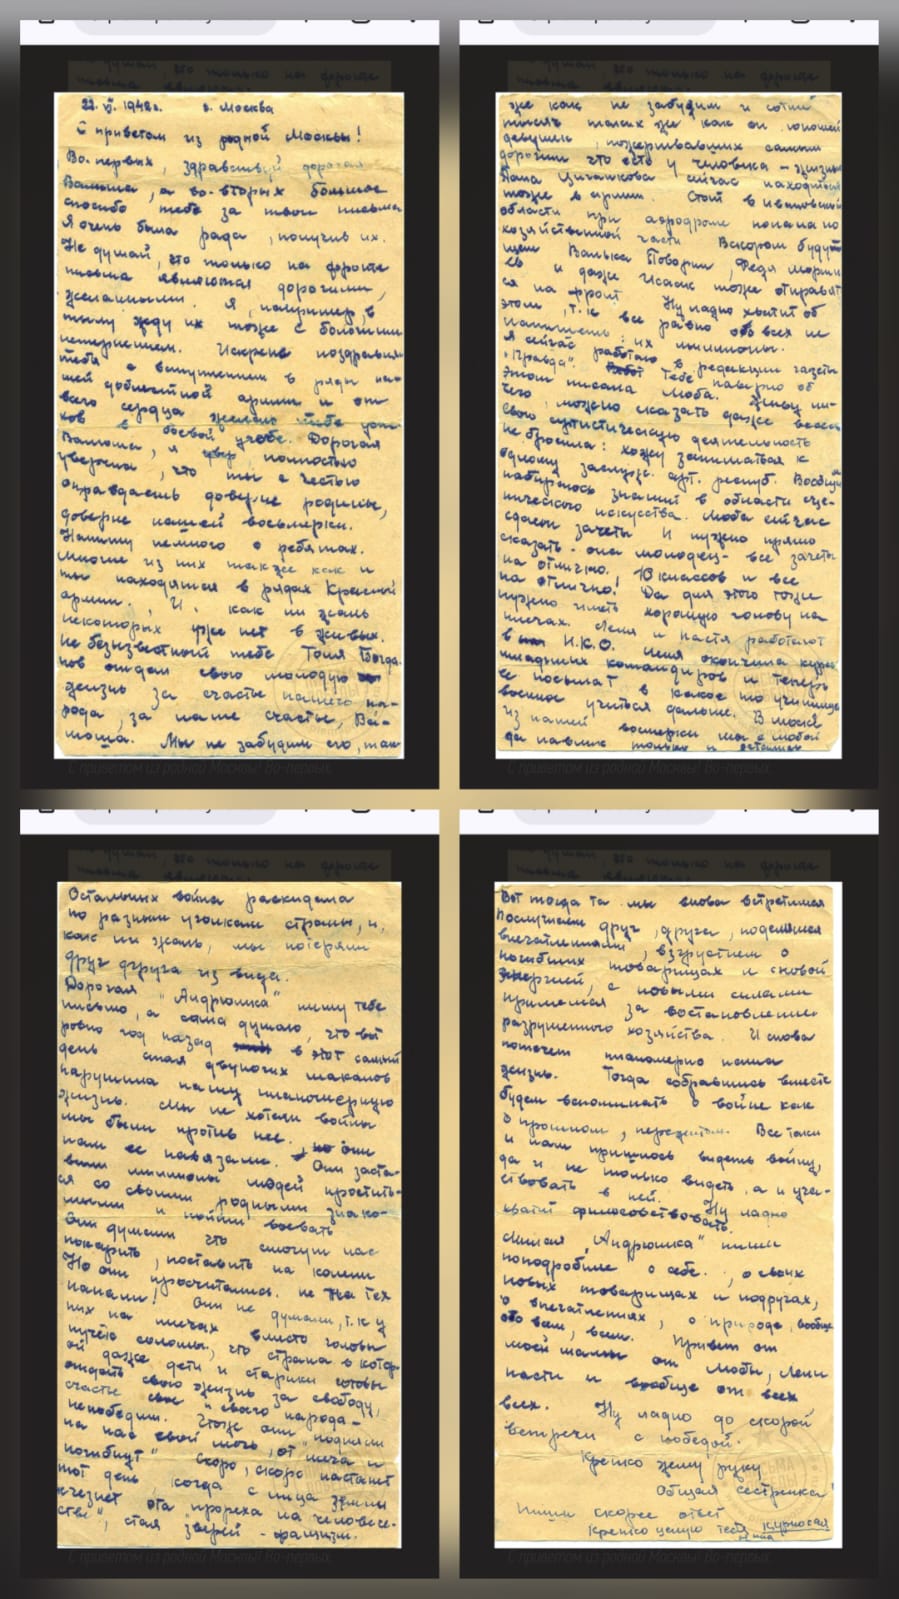 22. VI. 1942г. г. Москва
С приветом из родной Москвы!
Во-первых, здравствуй дорогая
Валюша, а во-вторых большое
спасибо тебе за твои письма
Я очень была рада, получив их.
Не думай, это только на фронте
письма являются дорогими,
желанными. Я, например, в
тылу жду их тоже с большим
нетерпением. Искрене поздравляю
тебя с вступлением в ряды на-
шей доблестной армии и от
всего сердца желаю тебе успе-
хов в боевой учебе. Дорогая
Валюша, я полностью
уверена, что ты с честью
оправдаешь доверие родины,
доверие нашей восьмерки.
Напишу немного о ребятах.
Многие из них также как и
ты находятся в рядах Красной
армии. И, как ни жаль
некоторых уже нет в живых.
Не безызвестный тебе Толя Богда-
нов отдал свою молодую
жизнь за счастье нашего на-
рода, за наше счастье, Ва-
люша. Мы не забудим его, так
же как не забудим и сотни
тысяч таких же как он юношей
девушек, пожертвовавших самым
дорогим что есть у человека - жизнью
сейчас находиться
тоже в армии. Стоит в
области при аэродроме
хозяйственной части. Вскором будут
Ванька Поворин, Федя
и даже Исаак тоже отправят
ся на фронт. Ну ладно хватит об
этом, т.к. все равно обо всех не
напишешь: их миллионы.
Я сейчас работаю в редакции газеты
"Правда". Тебе наверно об
этом писала Люба. Живу ни-
чего, можно сказать даже весело
Свою артистическую деятельность
не бросила: хожу заниматься к
одному заслуж. арт. респуб. Вообщем
набираюсь знаний в области сце-
нического искусства. Люба сейчас
сдает зачеты и нужно прямо
сказать - она молодец - все зачеты
на отлично. 10 классов и все
на отлично! Да для этого тоже
нужно иметь хорошую голову на
плечах. Леля и Настя работают
в Н.К.О. Леля окончила курсы
младших командиров и теперь
ее посылают в какое то училище
военное учиться дальше. В Москве
из нашей восмерки мы с Любой
да Павлик только и остались
Остальных война раскидала
по разным уголкам страны, и,
как ни жаль, мы потеряли
друг друга из вида.
Дорогая "Андрюшка" пишу тебе
письмо, а сама думаю, что вот
ровно год назад в этот самый
день стая двуногих шакалов
нарушила нашу планомерную
жизнь. Мы не хотели войны
мы были против нее, но они
нам ее навязали. Они заста-
вили миллионы людей простить-
ся со своими родными знако-
мыми и пойти воевать
Они думали что смогут нас
покорить, поставить на колени
Но они просчитались. Не на тех
напали! Они не думали, т.к. у
них на плечах вместо головы
пучок соломы, что страна в котор-
ой даже дети и старики готовы
отдать свою жизнь за свободу,
счастье своего народа -
непобедим. Чтоже они подняли
на нас свой меч, "от меча и
погибнут" Скоро, скоро настанет
тот день, когда с лица земли
исчезнет эта прореха на человече-
стве", стая зверей - фашизм.
Вот тогда та мы снова встретимся
Послушаем друг, друга, поделимся
впечатлениями, взгрустнем о
погибших товарищах и с новой
энергией, с новыми силами
примемся за востановление
разрушенного хозяйства. И снова
потечет планомерно наша
жизнь. Тогда собравшись вместе
будем вспоминать о войне как
о прошлом, пережитом. Все таки
и нам пришлось видеть войну,
да и не только видеть, а и учас-
ствовать в ней. Ну ладно
хватит философствовать.
Милая "Андрюшка" пиши
поподробнее о себе, о своих
новых товарищах и подругах,
о впечатлениях, о природе, вообще
обо всем, всем. Привет от
моей мамы от Любы, Лели
Насти и вообще от всех
всех. Ну ладно до скорой
встречи с победой.
Крепко жму руку
Общая сестренка!
Пиши скорее ответ
Крепко целую тебя Курносая
С приветом из родной Москвы! Во-первых,